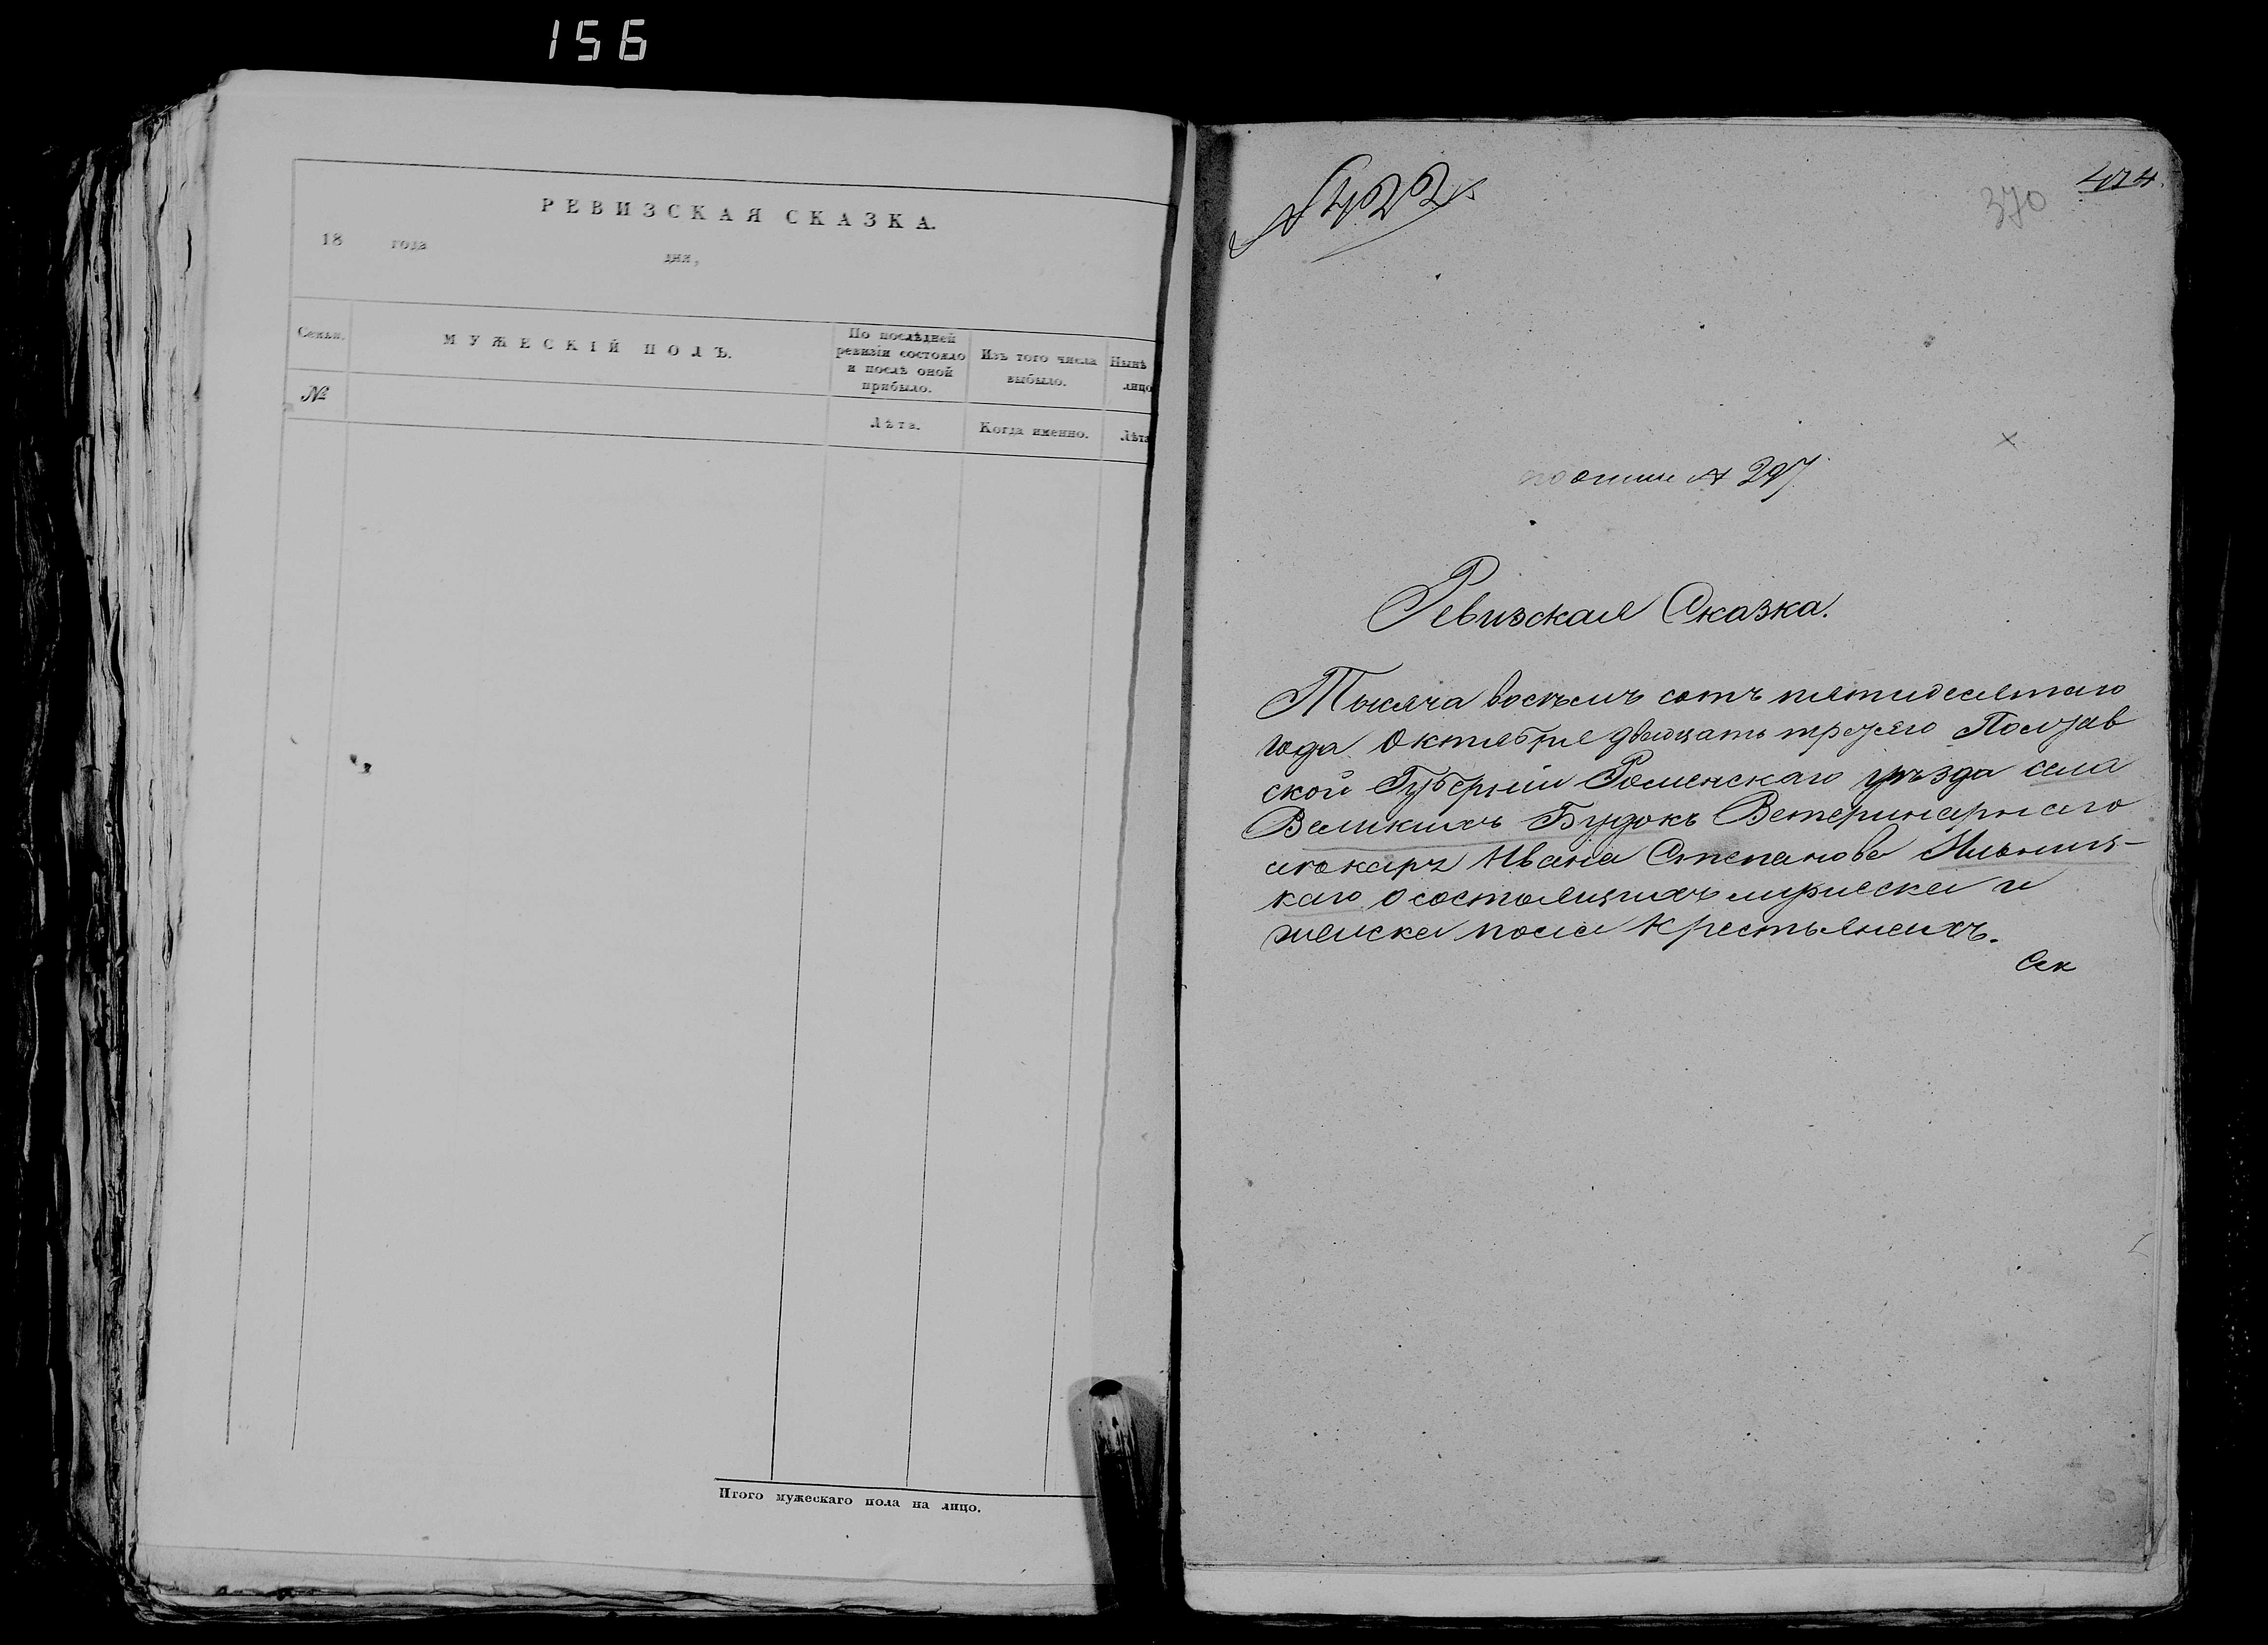 156
РЕВИЗСКАЯ СКАЗКА.
18 года
дня,
Семьи.
МУЖЕСКІЙ ПОЛЪ.
По послѣдней
ревизіи состояло
и послѣ оной
прибыло.
Изъ того числа
выбыло.
Нынѣ
лицо
№
Лѣта.
Когда именно.
Лѣта
Итого мужескаго пола на лицо.
№ 422
370
414.
по описи № 297
Ревизская Сказка.
Тысяча восѣемъ сотъ пятидесятаго
года Октября двадцать третяго Полтав
ской Губерніи Роменскаго уѣзда села
Великихъ Будокъ Ветеринарнаго
лекаря Ивана Степанова Ильниц-
каго о состоящихъ мужеска и
женска пола Крестьянахъ.